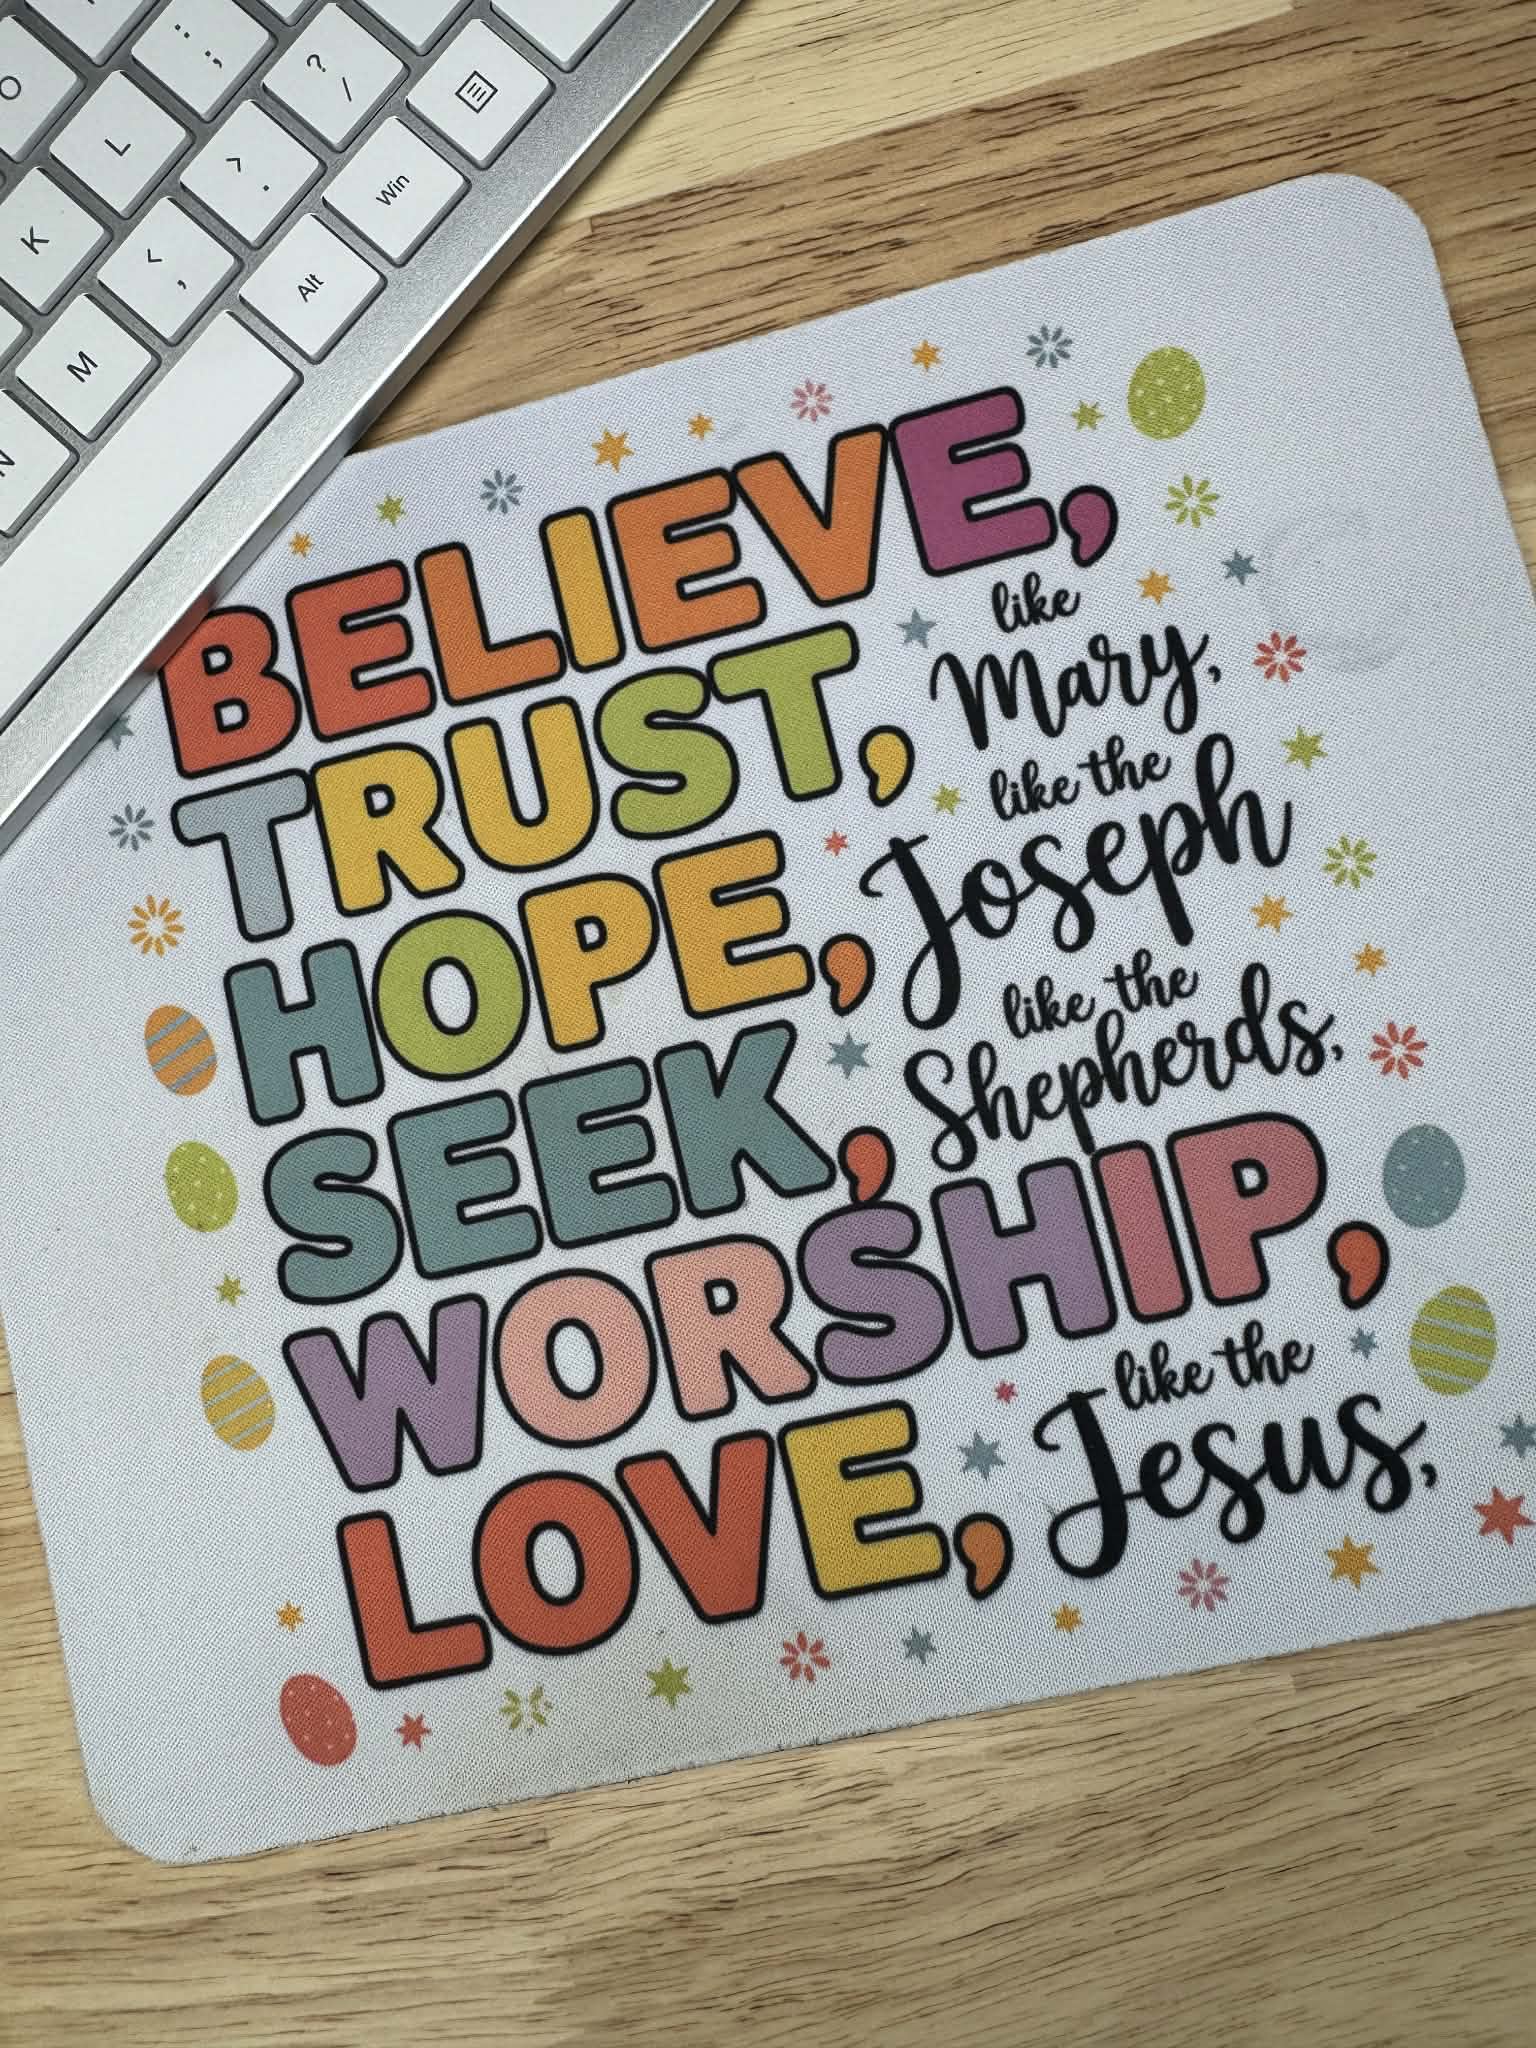 O
: ;
? /
L
> .
Win
K
< ,
Alt
M
N
BELIEVE,
like
TRUST, Mary,
like the
HOPE, Joseph
like the
SEEK, Shepherds,
WORSHIP,
like the
LOVE, Jesus,